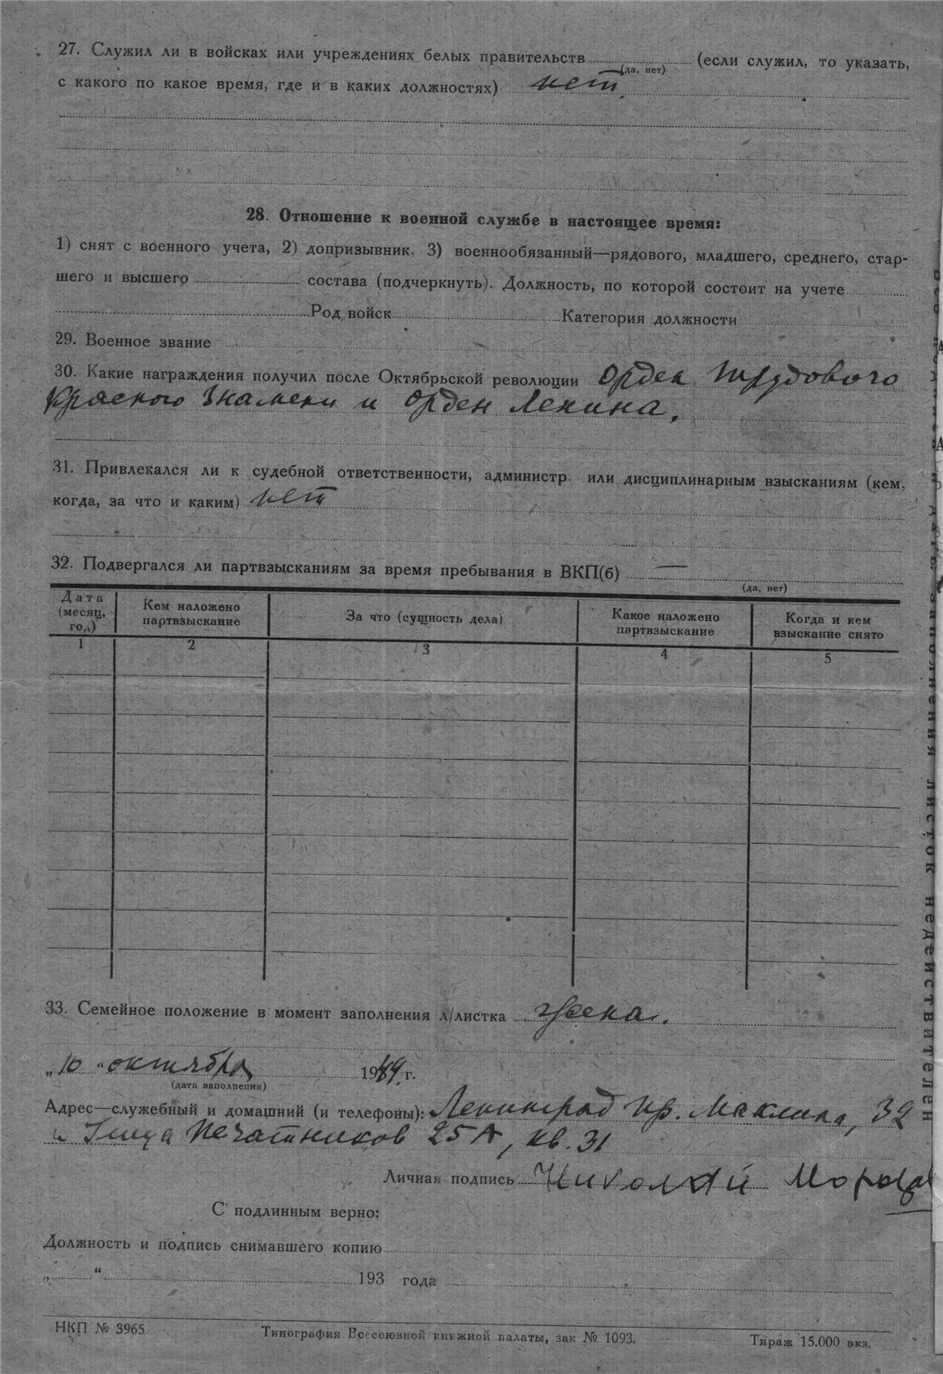 27. Служил ли в войсках или учреждениях белых правительств (если служил, то указать,
(да, нет)
с какого по какое время, где и в каких должностях) нет.
28. Отношение к военной службе в настоящее время:
1) снят с военного учета, 2) допризывник, 3) военнообязанный—рядового, младшего, среднего, стар-
шего и высшего состава (подчеркнуть). Должность, по которой состоит на учете
Род войск Категория должности
29. Военное звание
30. Какие награждения получил после Октябрьской революции Орден Трудового
Красного Знамени и орден Ленина.
31. Привлекался ли к судебной ответственности, администр. или дисциплинарным взысканиям (кем,
когда, за что и каким) нет
32. Подвергался ли партвзысканиям за время пребывания в ВКП(б) —
(да, нет)
Дата (месяц, год) Кем наложено партвзыскание За что (сущность дела) Какое наложено партвзыскание Когда и кем взыскание снято
1 2 3 4 5
33. Семейное положение в момент заполнения л/листка жена.
„10 “ октября 1944 г.
(дата заполнения)
Адрес—служебный и домашний (и телефоны): Ленинград пр. Маклина, 32
и Улица Печатников 25А, кв. 31
Личная подпись Николай Морозов
С подлинным верно:
Должность и подпись снимавшего копию
„ “ 193 года
НКП № 3965 Типография Всесоюзной книжной палаты, зак № 1093. Тираж 15.000 экз.
заполнения листок недействителен